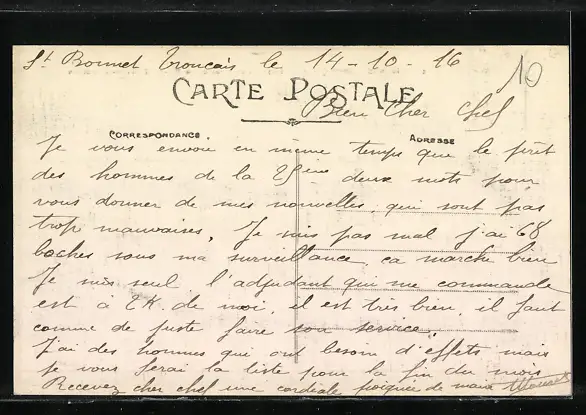 St Bonnet Troncais le 14-10-16
10
CARTE POSTALE
Bien Cher Chef
CORRESPONDANCE
ADRESSE
Je vous envoie en même temps que le prêt
des hommes de la 25ème deux mots pour
vous donner de mes nouvelles, qui sont pas
trop mauvaises. Je suis pas mal j'ai 68
boches sous ma surveillance, ca marche bien
Je suis seul l'adjudant qui me commande
est à 2K. de moi, il est très bien, il faut
comme de juste faire son service.
J'ai des hommes qui ont besoin d'effets mais
je vous ferai la liste pour la fin du mois
Recevez cher chef une cordiale poignée de main